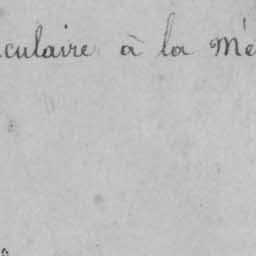 culaire à la Mé